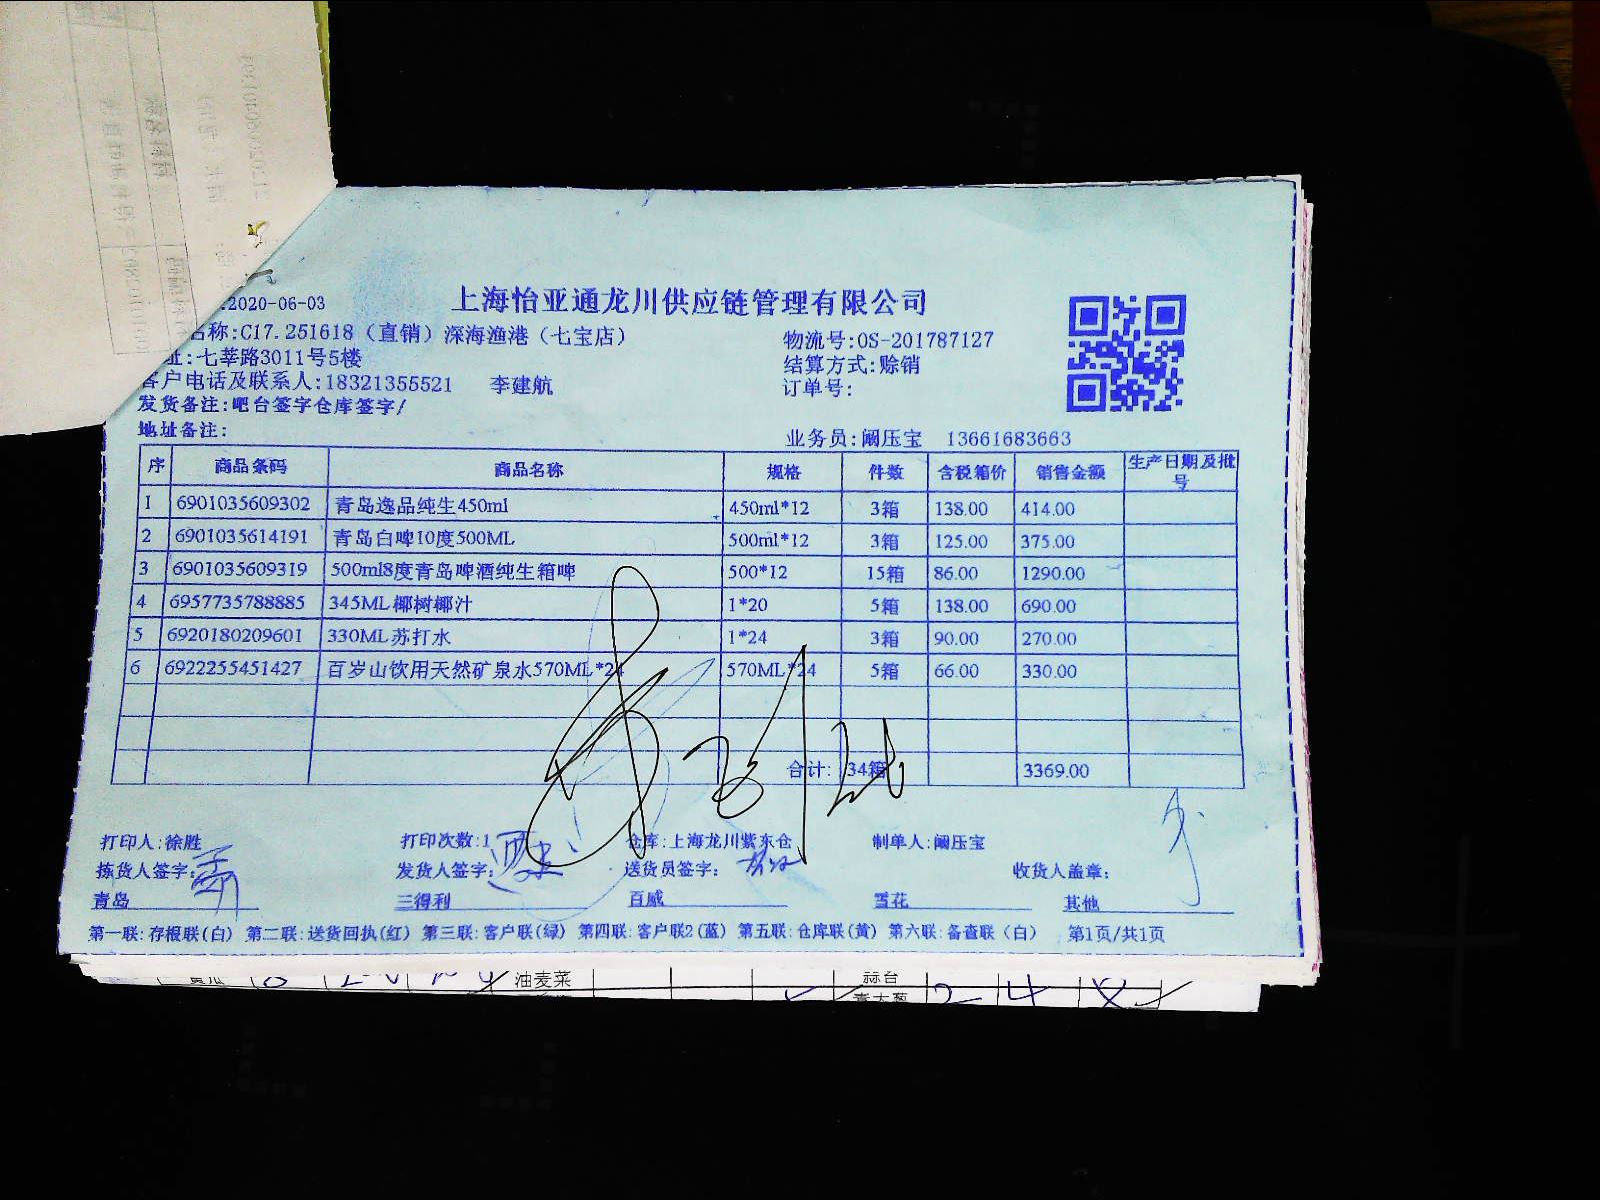 :2020-06-03
上海怡亚通龙川供应链管理有限公司
名称:C17.251618（直销）深海渔港（七宝店）
物流号:OS-201787127
址:七莘路3011号5楼
结算方式:赊销
客户电话及联系人:18321355521 李建航
订单号:
发货备注:吧台签字仓库签字/
地址备注:
业务员:阚压宝 13661683663
序 商品条码 商品名称 规格 件数 含税箱价 销售金额 生产日期及批号
1 6901035609302 青岛逸品纯生450ml 450ml*12 3箱 138.00 414.00
2 6901035614191 青岛白啤10度500ML 500ml*12 3箱 125.00 375.00
3 6901035609319 500ml8度青岛啤酒纯生箱啤 500*12 15箱 86.00 1290.00
4 6957735788885 345ML椰树椰汁 1*20 5箱 138.00 690.00
5 6920180209601 330ML苏打水 1*24 3箱 90.00 270.00
6 6922255451427 百岁山饮用天然矿泉水570ML*24 570ML*24 5箱 66.00 330.00
合计: 34箱 3369.00
打印人:徐胜 打印次数:1 仓库:上海龙川紫东仓 制单人:阚压宝
拣货人签字: 发货人签字: 送货员签字: 收货人盖章:
青岛 三得利 百威 雪花 其他
第一联:存根联(白) 第二联:送货回执(红) 第三联:客户联(绿) 第四联:客户联2(蓝) 第五联:仓库联(黄) 第六联:备查联（白） 第1页/共1页
油麦菜 蒜台
2 4